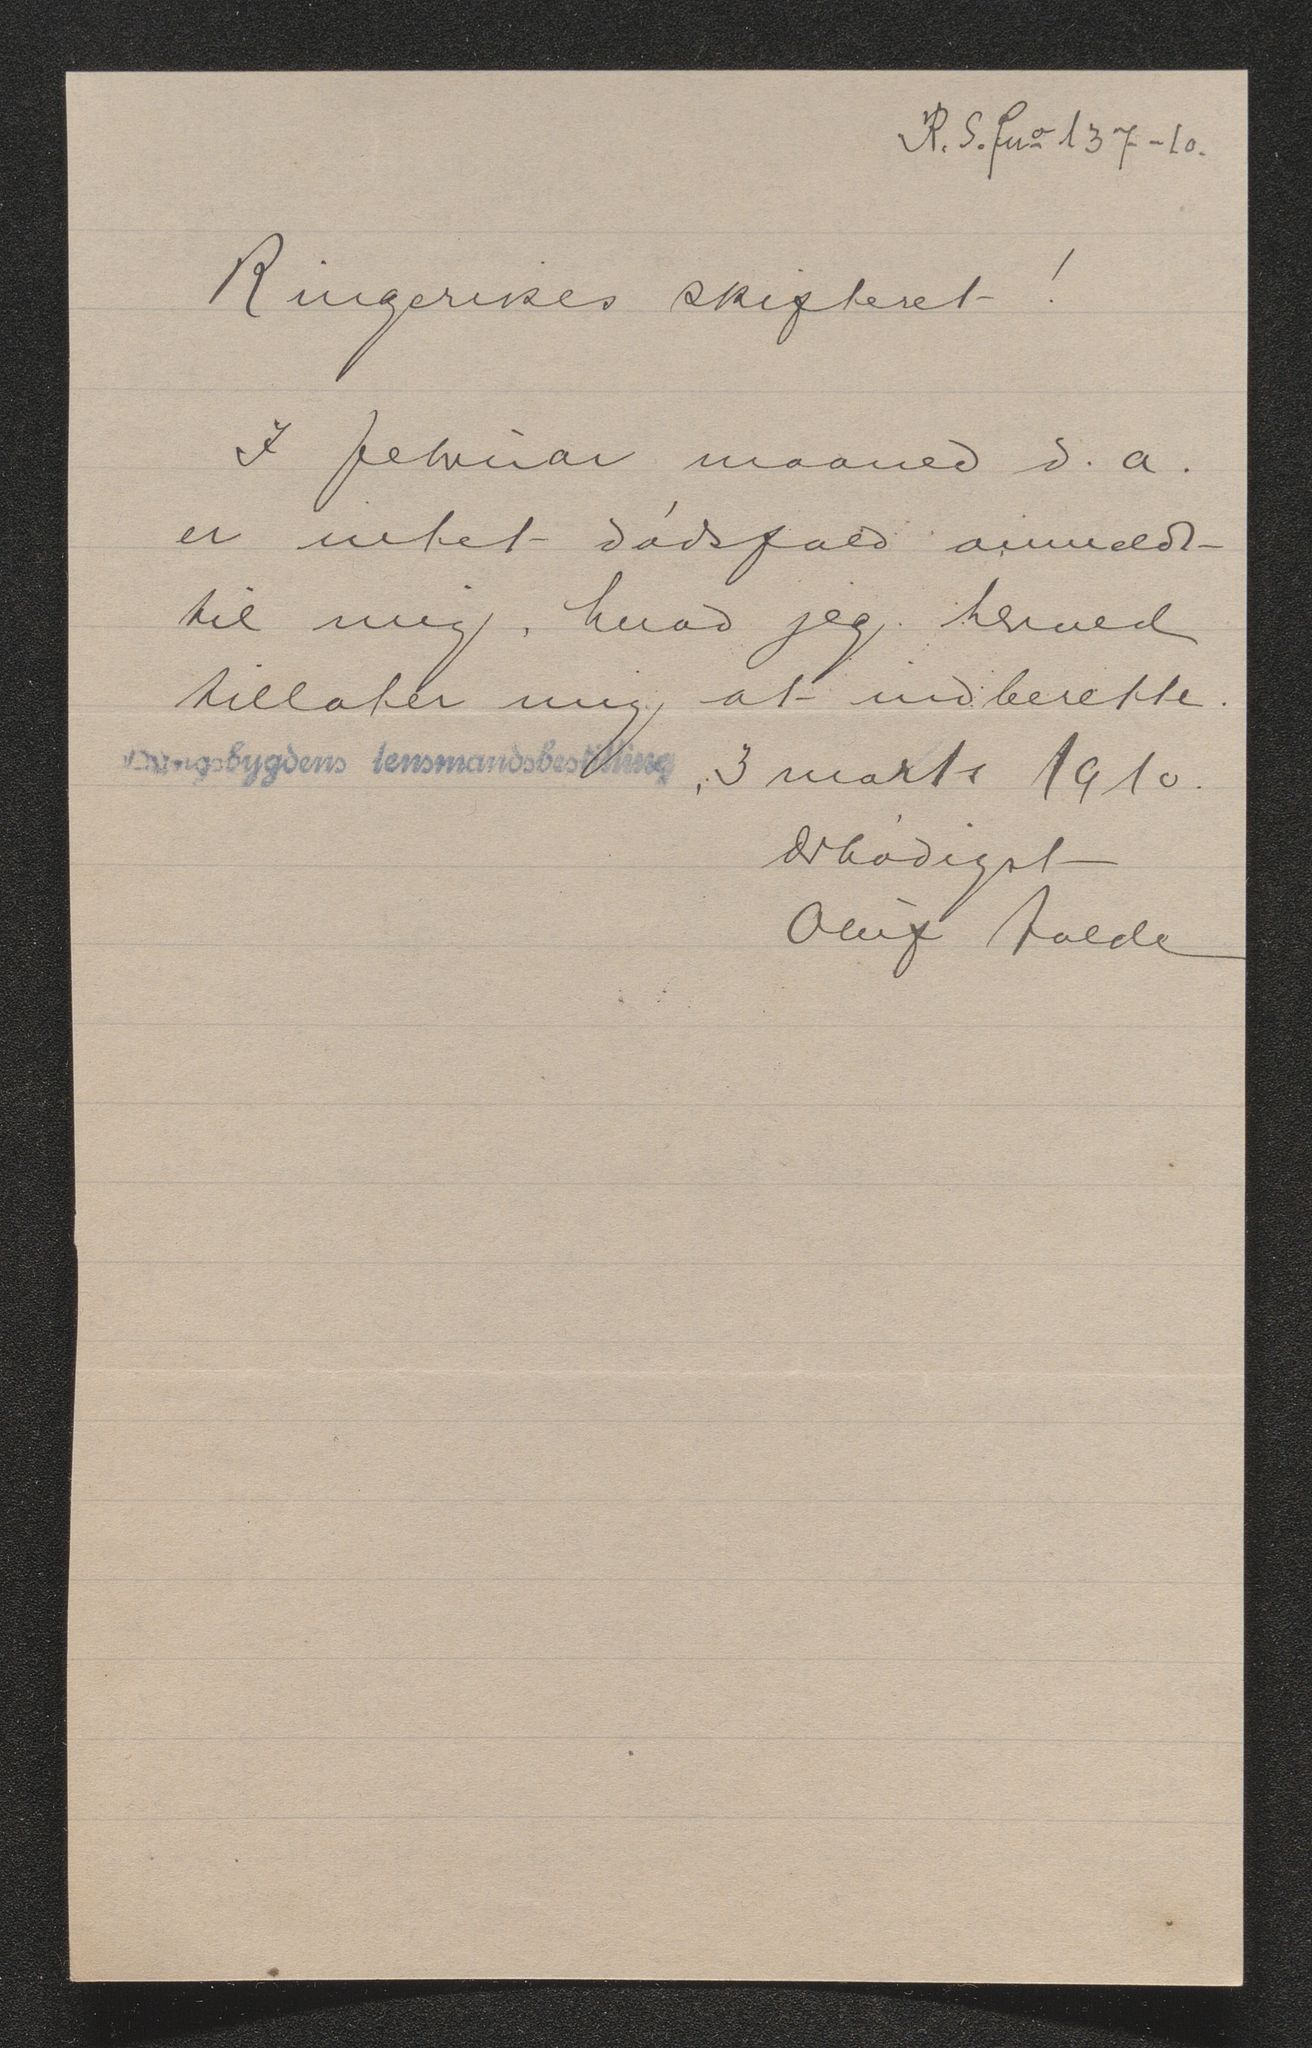 R. S. jno 137-10.
Ringerikes skifteret!
I februar maaned d. a.
er intet dødsfald anmeldt
til mig, hvad jeg herved
tillater mig at indberette.
lensmandsbestilling, 3 marts 1910.
Ærbødigst
Oluf